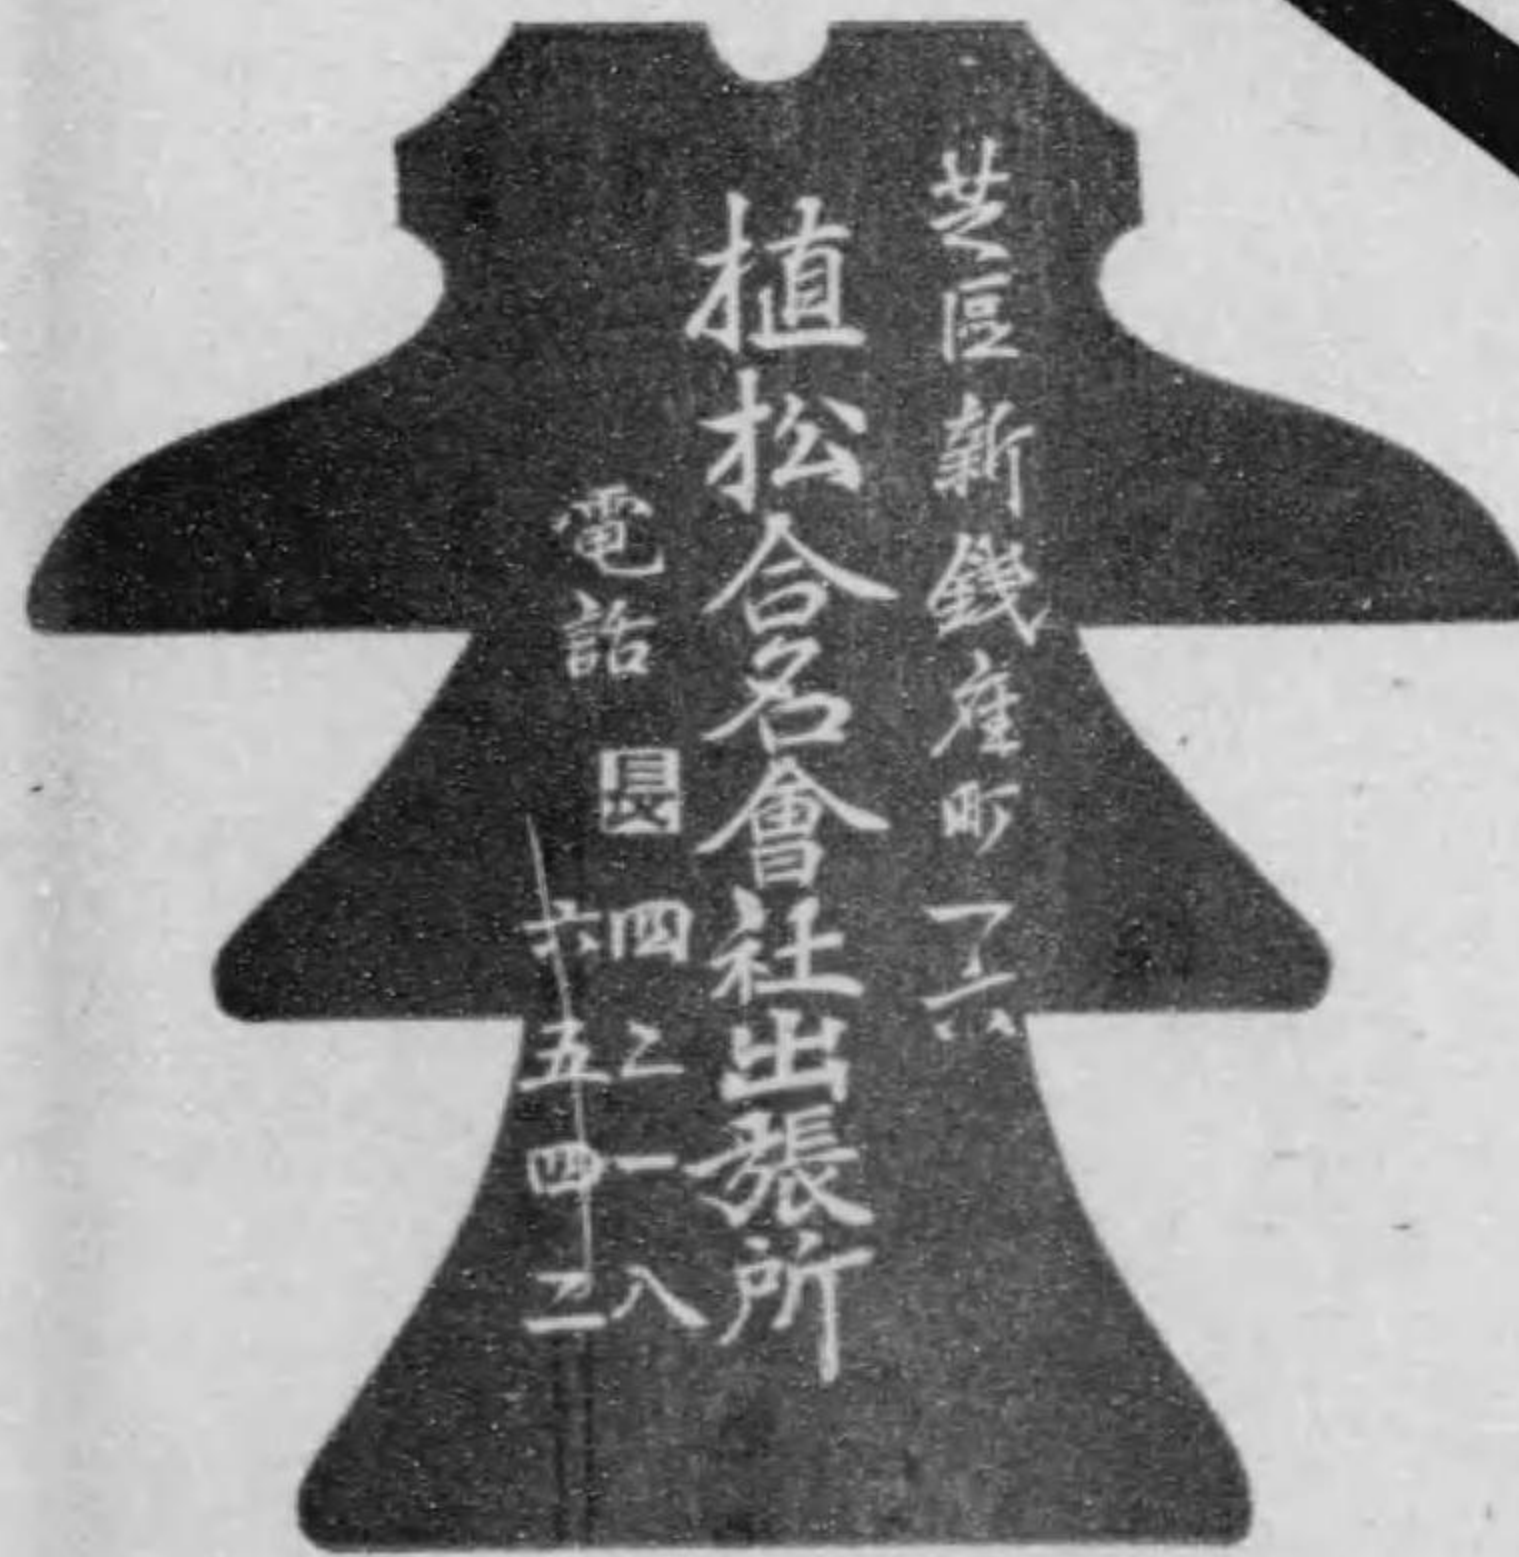 芝區新錢座町一ノ六
植松合名會社出張所
電話 長 四二一八
六五四二